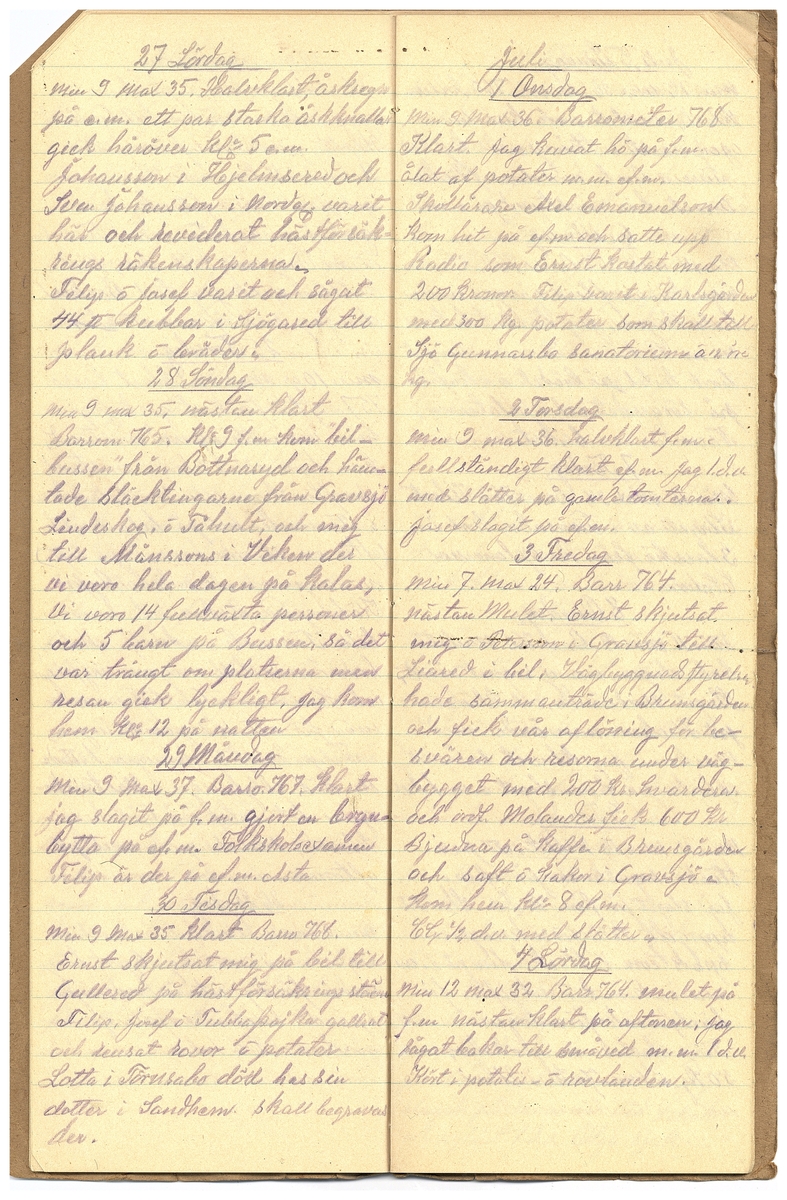 27 Lördag
Min 9 max 35. Halvklart, åskregn
på e.m. ett par starka åskknallar
gick häröver kl: 5 e.m.
Johansson i Hjelmsered och
Sven Johansson i Nordag, varit
här och reviderat hästförsäk-
rings räkenskaperna.
Filip o Josef varit och sågat
44 st kubbar i Sjögared till
plank o bräder.
28 Söndag
Min 9 max 35, nästan klart
Barrom 765. Kl: 9 f.m kom "bil-
bussen" från Bottnaryd och häm-
tade släcktingarne från Gravsjö
Lindeskog, o Tåhult, och mig
till Månssons i Viken der
vi voro hela dagen på kalas,
Vi voro 14 fullväxta personer
och 5 barn på Bussen, så det
var trångt om platserna men
resan gick lyckligt, jag kom
hem Kl: 12 på natten
29 Måndag
Min 9 Max 37. Barro. 767. Klart
jag slagit på f.m. gjort en
bytta på ef.m. Folkskolexamen
Filip är der på ef.m. Asta
30 Tisdag
Min 9 Max 35 klart Barro 768.
Ernst skjutsat mig på bil till
Gullered på hästförsäkrings stäm
Filip, Josef o gallrat
och rensat rovor o potater
Lotta i Törnsabo död hos sin
dotter i Sandhem. skall begravas
der.
Juli
1 Onsdag
Min 9 Max 36. Barrometer 768
Klart. Jag kavat hö på f.m.
ålat af potater m.m. ef.m.
Skollärare Axel Emanuelson
kom hit på ef.m och satte upp
Radio som Ernst kostat med
200 kronor Filip varit i Karlsgården
med 300 kg potater som skall till
Sjö Gunnarsbo sanatorium a 12 öre
kg.
2 Torsdag
Min 9 max 36. halvklart f.m.
fullständigt klart ef.m. jag 1. d.v.
med slåtter på gamle tomterna.
Josef slagit på ef.m.
3 Fredag
Min 7. Max 24. Barr 764.
Nästan Mulet. Ernst skjutsat
mig o Peterson i Gravsjö till
Liared i bil, Vägbyggnads styrelse
hade sammanträde i Brunsgården
och fick vår aflöning för be-
svären och resorna under väg-
bygget med 200 kr. hvardera
och ordf. Molander fick 600 kr
Bjudna på kaffe i Brunsgården
och saft o kakor i Gravsjö.
kom hem kl: 8 ef.m.
EG. 1/2 d.v med slåtter
4 Lördag
Min 12 max 32 Barr. 764. mulet på
f.m nästan klart på aftonen, jag
sågat bakar till småved m.m. 1 d.v.
Kört i potatis- o rovlanden.